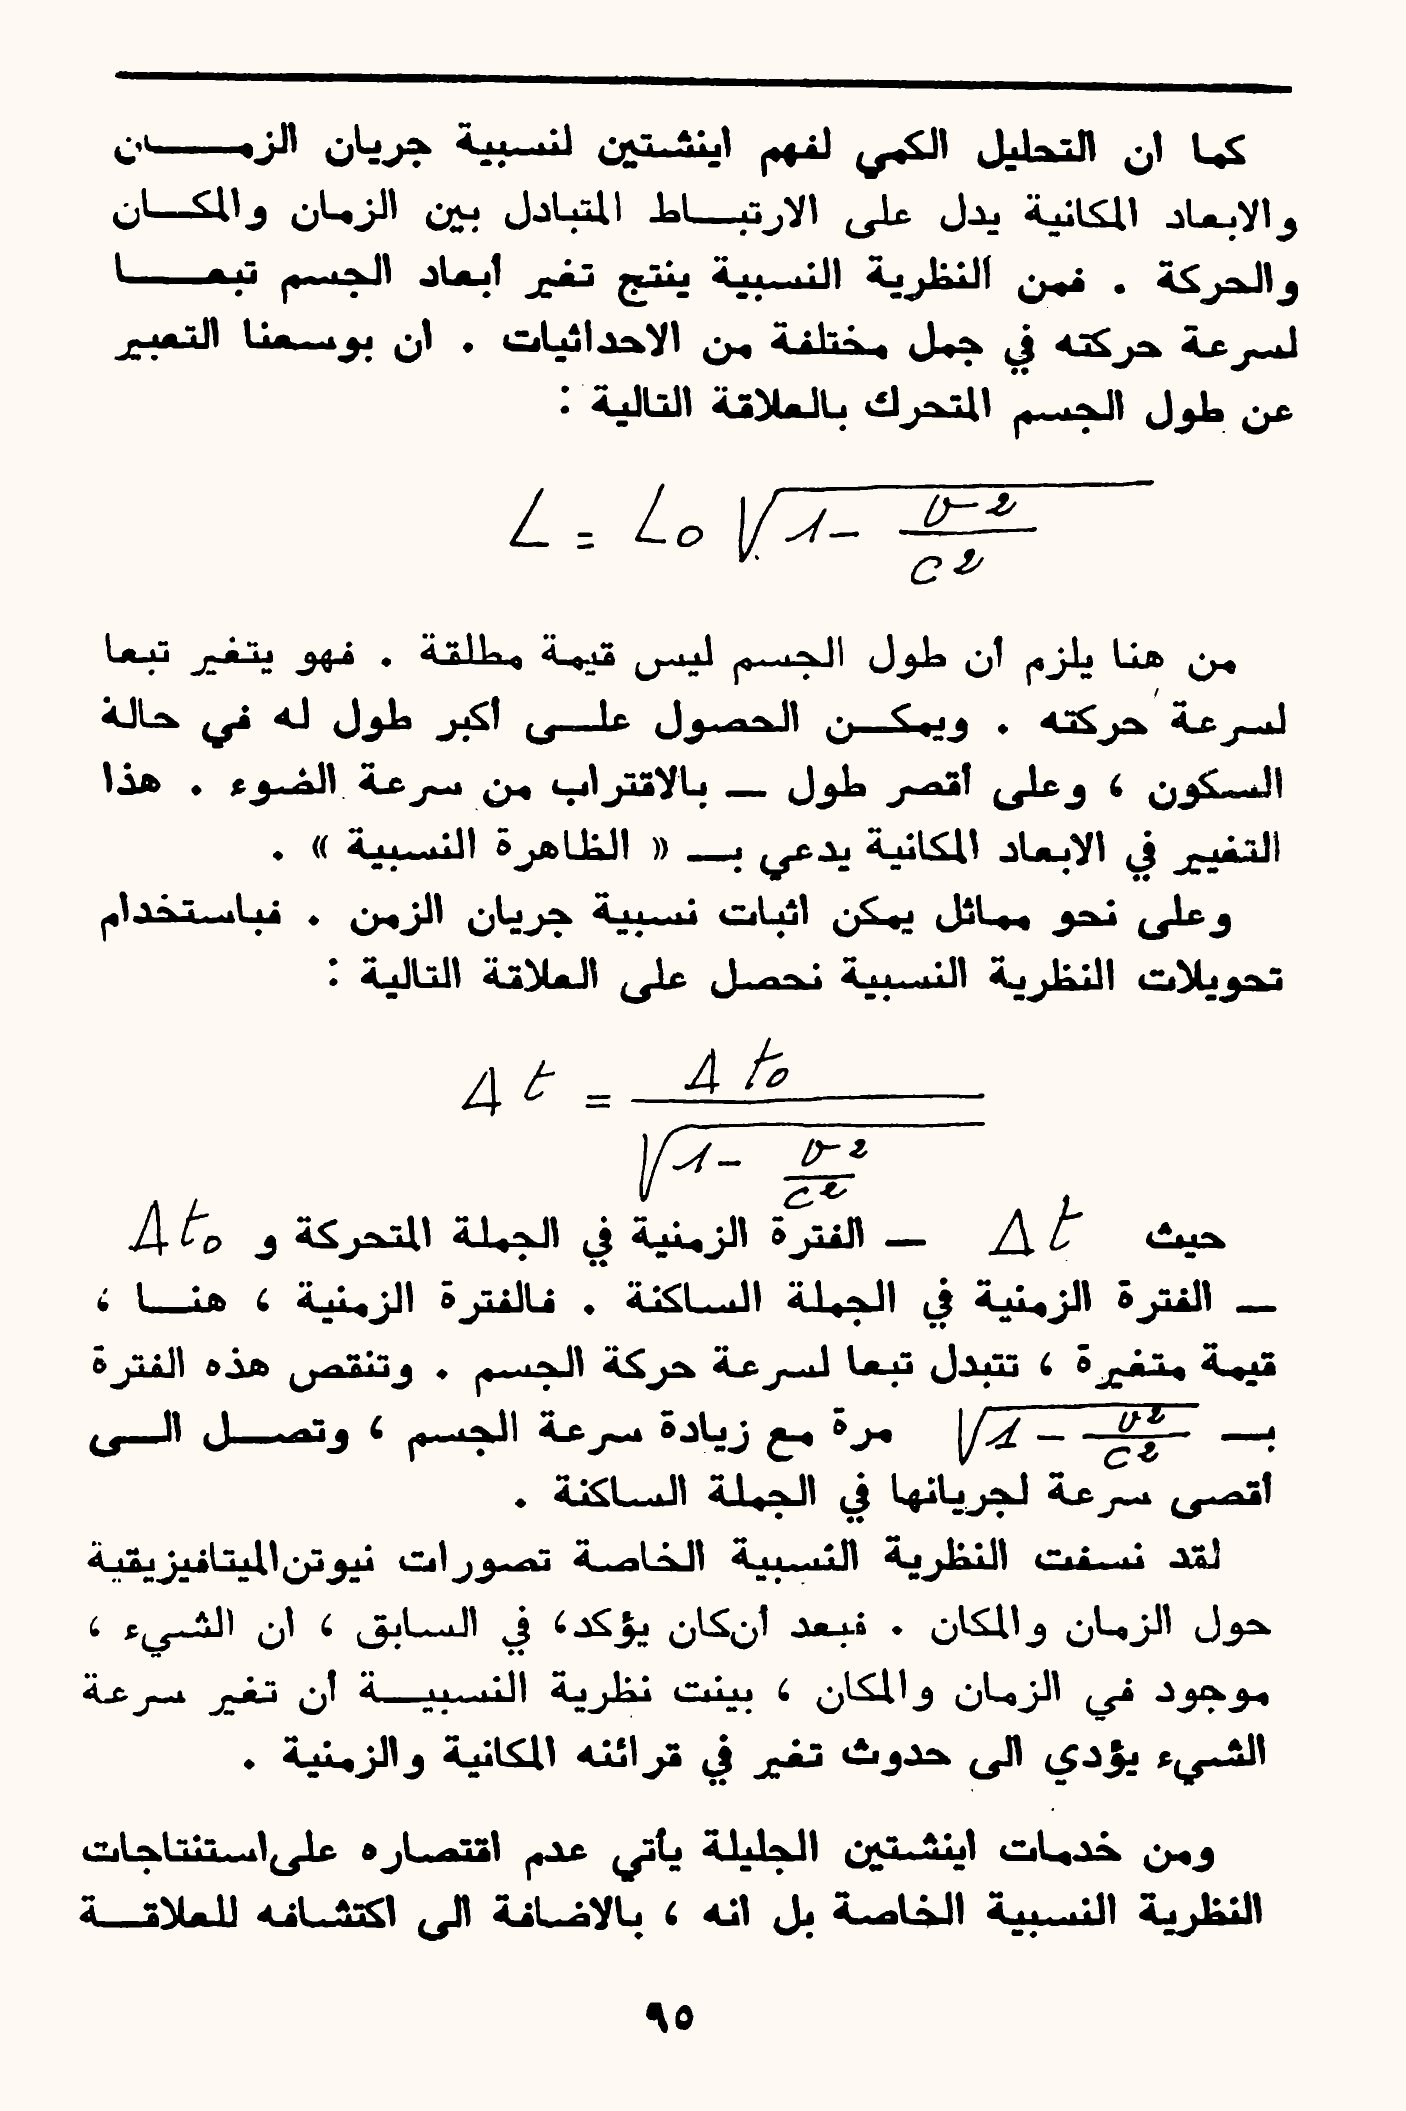 كما ان التحليل الكمي لفهم اينشتين لنسبية جريان الزمـــــان
والابعاد المكانية يدل على الارتبـــاط المتبادل بين الزمان والمكـــان
والحركة . فمن النظرية النسبية ينتج تغير أبعاد الجسم تبعـــــا
لسرعة حركته في جمل مختلفة من الاحداثيات . ان بوسعنا التعبير
عن طول الجسم المتحرك بالعلاقة التالية :
L = L₀ √(1 - v²/c²)
من هنا يلزم أن طول الجسم ليس قيمة مطلقة . فهو يتغير تبعا
لسرعة حركته . ويمكـــن الحصول علـــى أكبر طول له في حالة
السكون ، وعلى أقصر طول — بالاقتراب من سرعة الضوء . هذا
التغيير في الابعاد المكانية يدعي بـ — « الظاهرة النسبية » .
وعلى نحو مماثل يمكن اثبات نسبية جريان الزمن . فباستخدام
تحويلات النظرية النسبية نحصل على العلاقة التالية :
Δt = Δt₀ / √(1 - v²/c²)
حيث Δt — الفترة الزمنية في الجملة المتحركة و Δt₀
— الفترة الزمنية في الجملة الساكنة . فالفترة الزمنية ، هنـــا ،
قيمة متغيرة ، تتبدل تبعا لسرعة حركة الجسم . وتنقص هذه الفترة
بـ — √(1 - v²/c²) مرة مع زيادة سرعة الجسم ، وتصـــل الـــى
أقصى سرعة لجريانها في الجملة الساكنة .
لقد نسفت النظرية النسبية الخاصة تصورات نيوتن الميتافيزيقية
حول الزمان والمكان . فبعد أن كان يؤكد ، في السابق ، ان الشيء ،
موجود في الزمان والمكان ، بينت نظرية النسبيـــة أن تغير سرعة
الشيء يؤدي الى حدوث تغير في قرائنه المكانية والزمنية .
ومن خدمات اينشتين الجليلة يأتي عدم اقتصاره على استنتاجات
النظرية النسبية الخاصة بل انه ، بالاضافة الى اكتشافه للعلاقـــة
٩٥